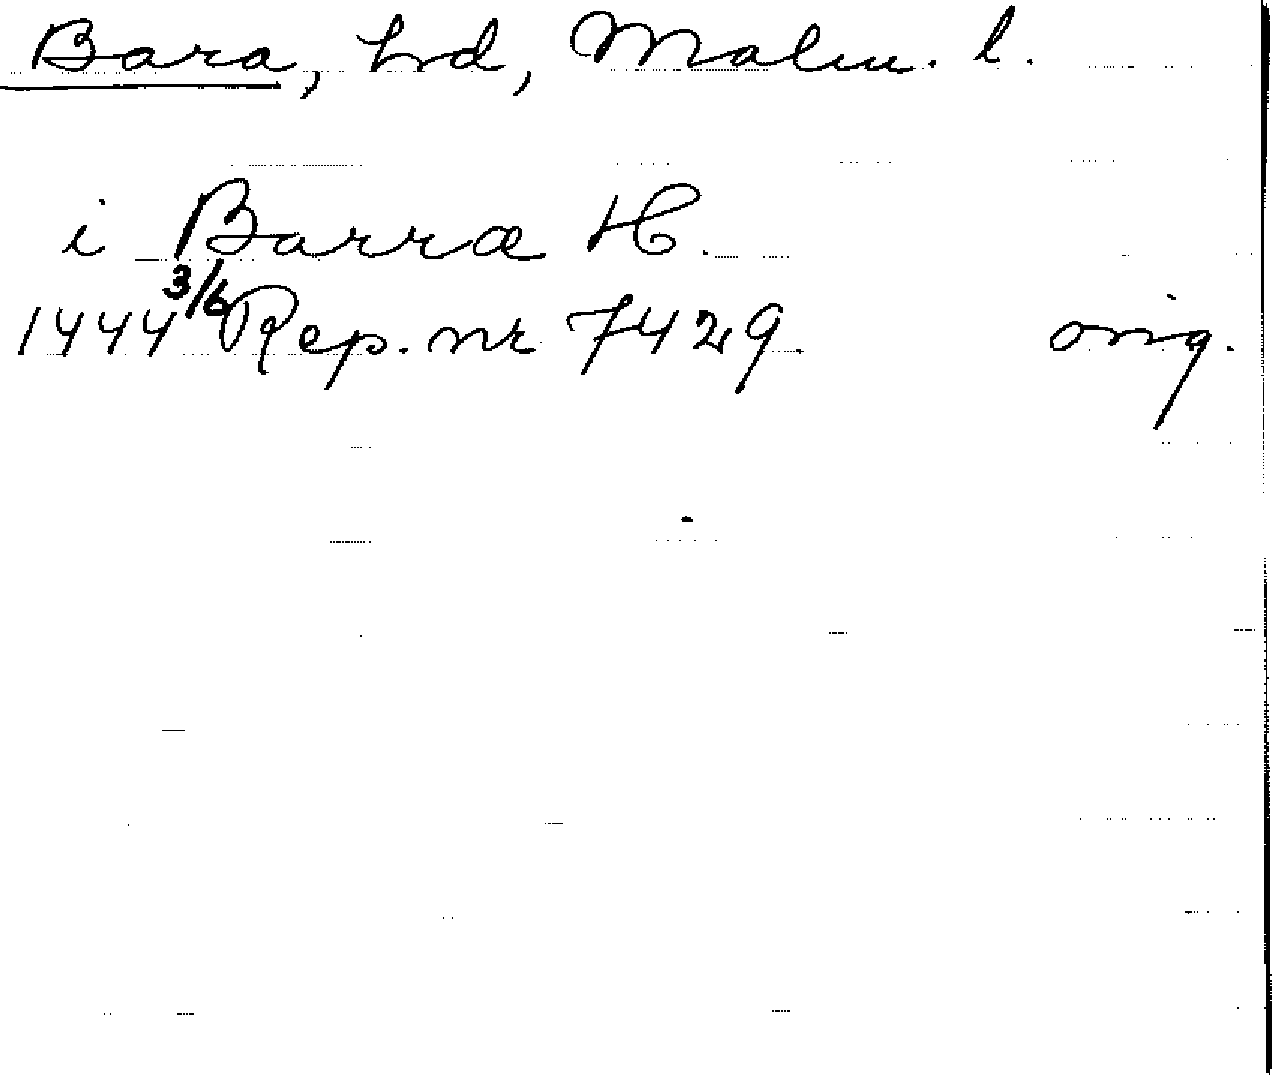 Bara, hd, Malm. l.
i Barræ H.
1444 3/6 Rep. nr 7429 orig.